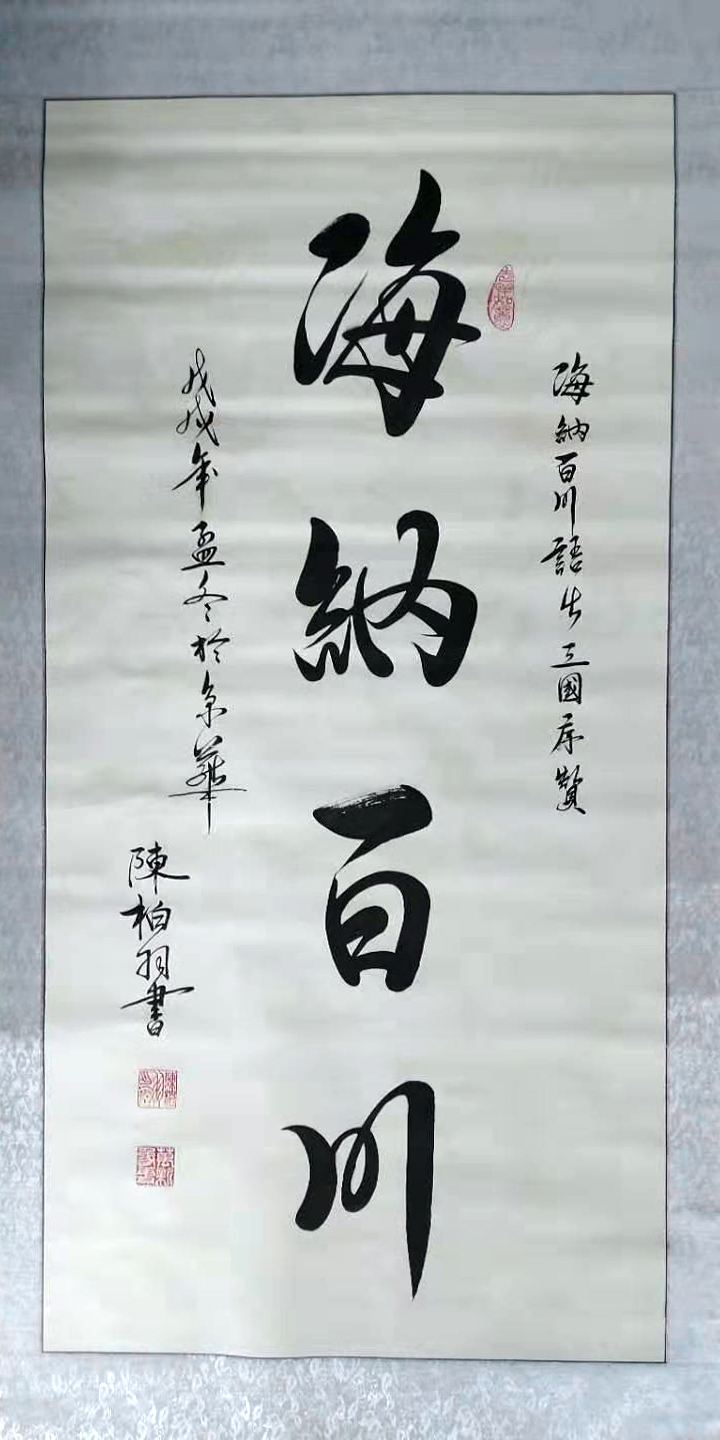 海納百川語出三國序贊
海納百川
戊戌年孟冬於京華
陳柏羽書